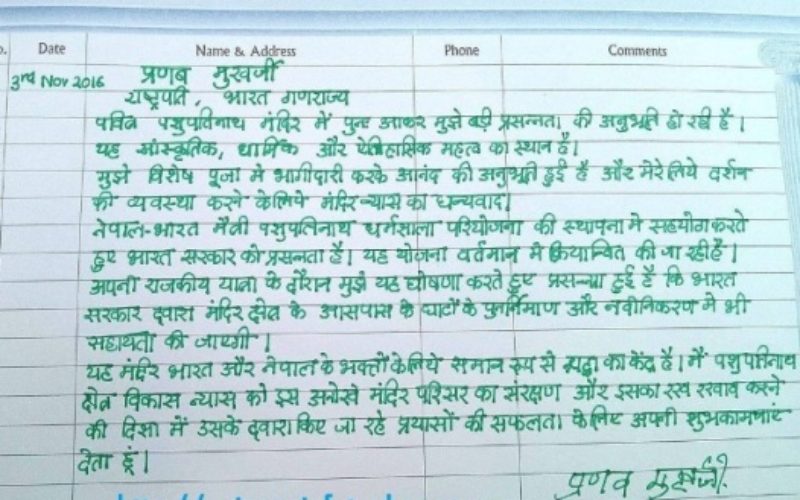 Date Name & Address Phone Comments
3rd Nov 2016 प्रणब मुखर्जी
राष्ट्रपति, भारत गणराज्य
पवित्र पशुपतिनाथ मंदिर में पुनः आकर मुझे बड़ी प्रसन्नता की अनुभूति हो रही है।
यह सांस्कृतिक, धार्मिक और ऐतिहासिक महत्व का स्थान है।
मुझे विशेष पूजा मे भागीदारी करके आनंद की अनुभूति हुई है और मेरे लिये दर्शन
की व्यवस्था करने के लिये मंदिर न्यास का धन्यवाद।
नेपाल-भारत मैत्री पशुपतिनाथ धर्मसाला परियोजना की स्थापना मे सहयोग करते
हुए भारत सरकार को प्रसनता है। यह योजना वर्तमान मे क्रियान्वित की जा रही है।
अपनी राजकीय यात्रा के दौरान मुझे यह घोषणा करते हुए प्रसन्न्ता हुई है कि भारत
सरकार द्वारा मंदिर क्षेत्र के आसपास के घाटों के पुनर्निमाण और नवीनिकरण मे भी
सहायता की जाएगी।
यह मंदिर भारत और नेपाल के भक्तों के लिये समान रूप से श्रद्धा का केंद्र है। मैं पशुपतिनाथ
क्षेत्र विकास न्यास को इस अनोखे मंदिर परिसर का संरक्षण और इसका रख रखाव करने
की दिसा में उसके द्वारा किए जा रहे प्रयासों की सफलता के लिए अपनी शुभकामनाएं
देता हूं।
प्रणब मुखर्जी